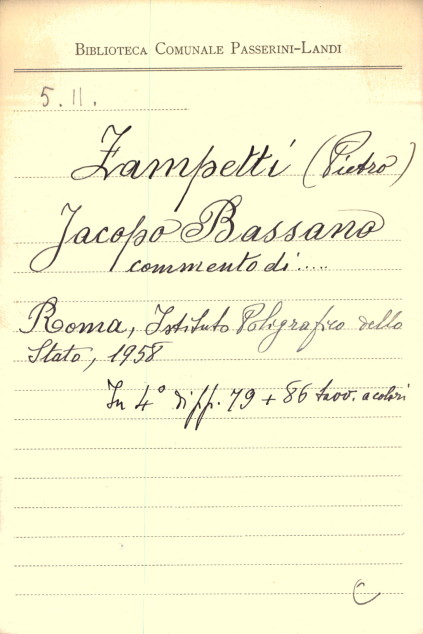 BIBLIOTECA COMUNALE PASSERINI-LANDI
5.11.
Zampetti (Pietro)
Jacopo Bassano
commento di .....
Roma, Istituto Poligrafico dello
Stato, 1958
In 4° di pp. 79 + 86 tavv. a colori
C